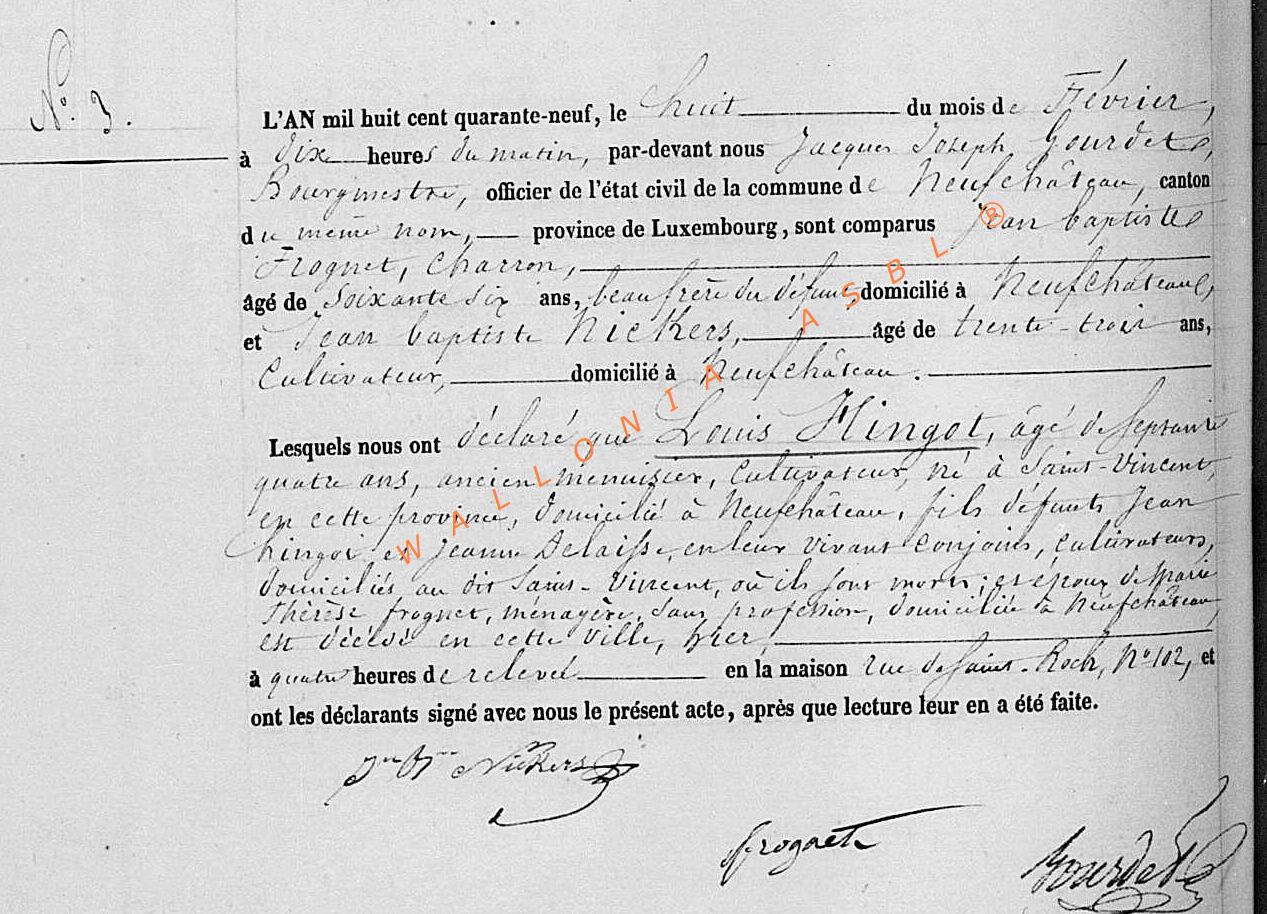 N° 3.
L'AN mil huit cent quarante-neuf, le huit du mois de Février,
à dix heures du matin, par-devant nous Jacques Joseph Gourdet,
Bourgmestre, officier de l'état civil de la commune de Neufchâteau, canton
du même nom, province de Luxembourg, sont comparus Jean baptiste
Frognet, Charron,
âgé de soixante six ans, beau frère du défunt, domicilié à Neufchâteau,
et Jean baptiste Nickers, âgé de trente-trois ans,
Cultivateur, domicilié à Neufchâteau.
Lesquels nous ont déclaré que Louis Hingot, âgé de Septante
quatre ans, ancien menuisier, Cultivateur, né à Saint-Vincent,
en cette province, domicilié à Neufchâteau, fils défunts Jean
hingot et Jeanne Delaisse, en leur vivant conjoins, cultivateurs,
domiciliés au dit Saint-Vincent, où ils sont morts; et époux de Marie
Thérèse frognet, ménagère, sans profession, domiciliée à Neufchâteau,
est décédé en cette ville, hier,
à quatre heures de relevée en la maison rue de Saint-Roch, N° 102, et
ont les déclarants signé avec nous le présent acte, après que lecture leur en a été faite.
Jn Bte Nickers
frognet
Gourdet
WALLONIA ASBL ®